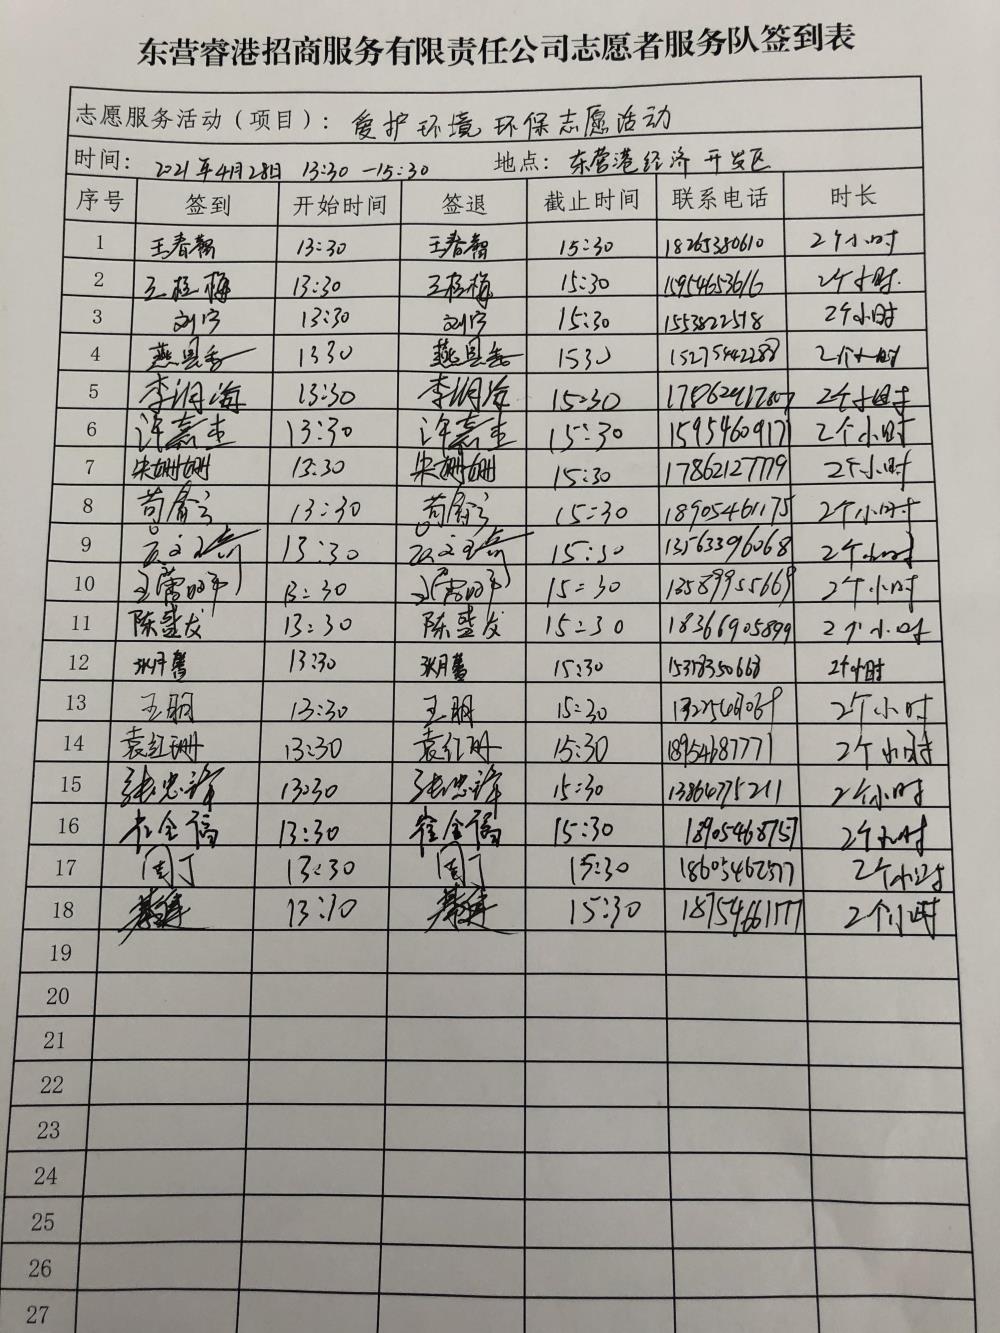 东营睿港招商服务有限责任公司志愿者服务队签到表
志愿服务活动（项目）： 爱护环境 环保志愿活动
时间： 2021年4月28日 13:30 —15:30 地点： 东营港经济开发区
序号 签到 开始时间 签退 截止时间 联系电话 时长
1 13:30 15:30 18265380610 2个小时
2 王桂梅 13:30 王桂梅 15:30 15954653616 2个小时.
3 刘宁 13:30 刘宁 15:30 1553822518 2个小时
4 1330 1530 15275442288 2个小时
5 李润海 13:30 李润海 15:30 2个小时
6 许嘉杰 13:30 许嘉杰 15:30 15954609171 2个小时
7 13:30 15:30 17862127779 2个小时
8 13:30 15:30 18905461175 2个小时
9 13:30 15:30 13563396068 2个小时
10 13:30 15:30 13589955669 2个小时
11 陈盛友 13:30 陈盛友 15:30 18366905899 2个小时
12 13:30 15:30 15378350668 2个小时
13 王朋 13:30 王朋 15:30 2个小时
14 袁红珊 13:30 袁红珊 15:30 18954687771 2个小时
15 张忠锋 13:30 张忠锋 15:30 13864775211 2个小时
16 崔金福 13:30 崔金福 15:30 18905468757 2个小时
17 周丁 13:30 周丁 15:30 18605462577 2个小时
18 15:30 18754661777 2个小时
19
20
21
22
23
24
25
26
27